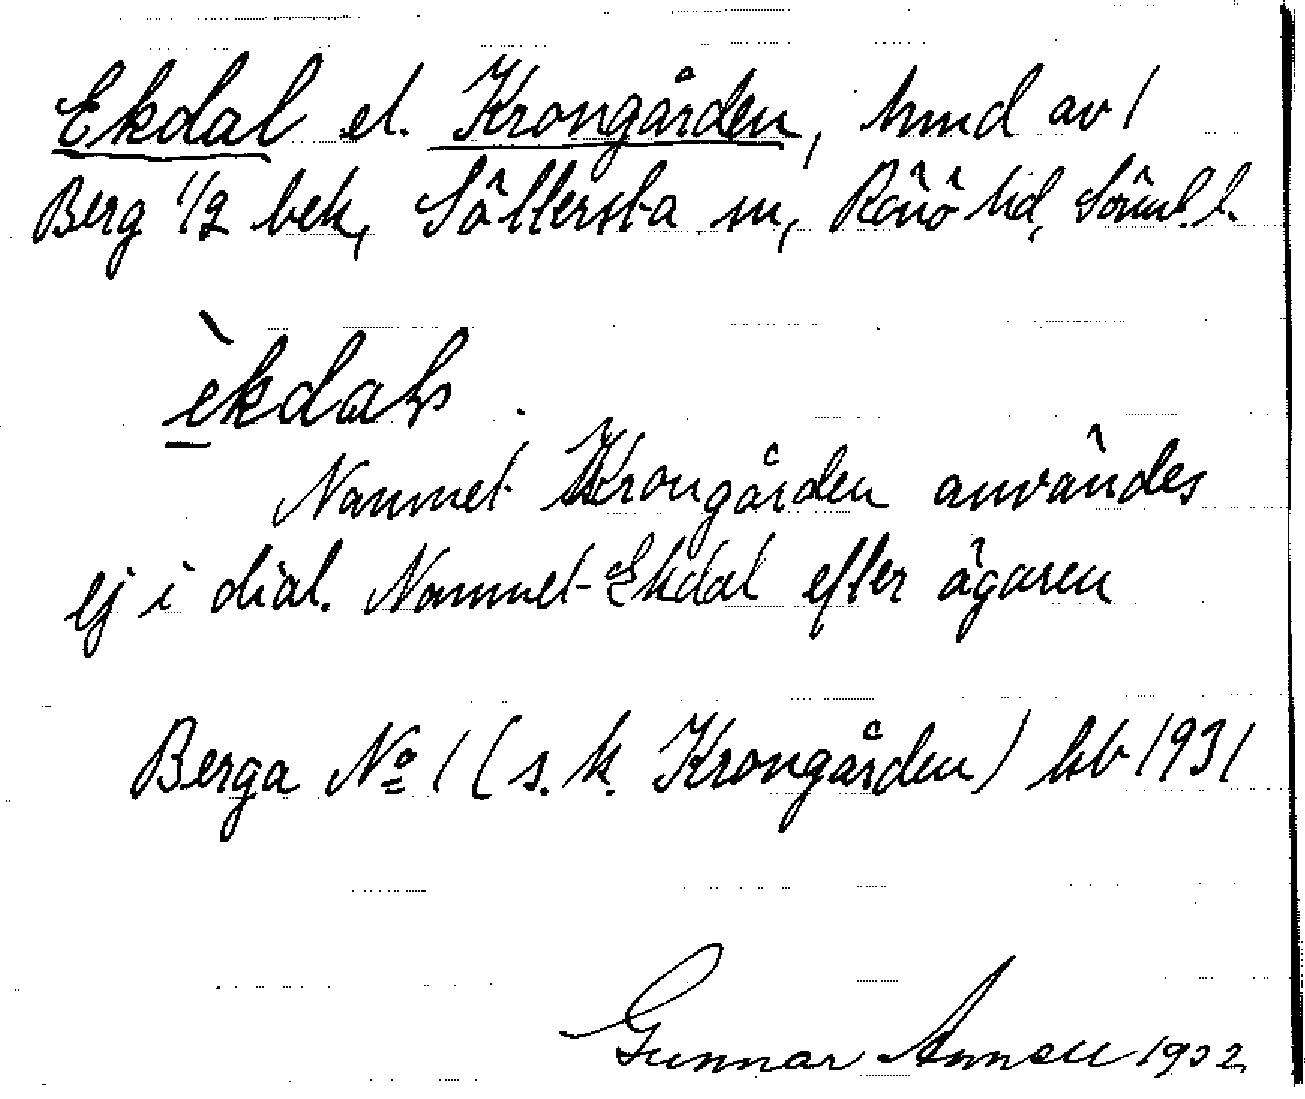 Ekdal el. Krongården, hmd av 1
Berg 1/2 bek, Sättersta sn, Rönö hd, Sörml. l.
èkdals
Namnet Krongården användes
ej i dial. Namnet Ekdal efter ägaren
Berga No 1 (s. k. Krongården) hb 1931
Gunnar Annell 1932